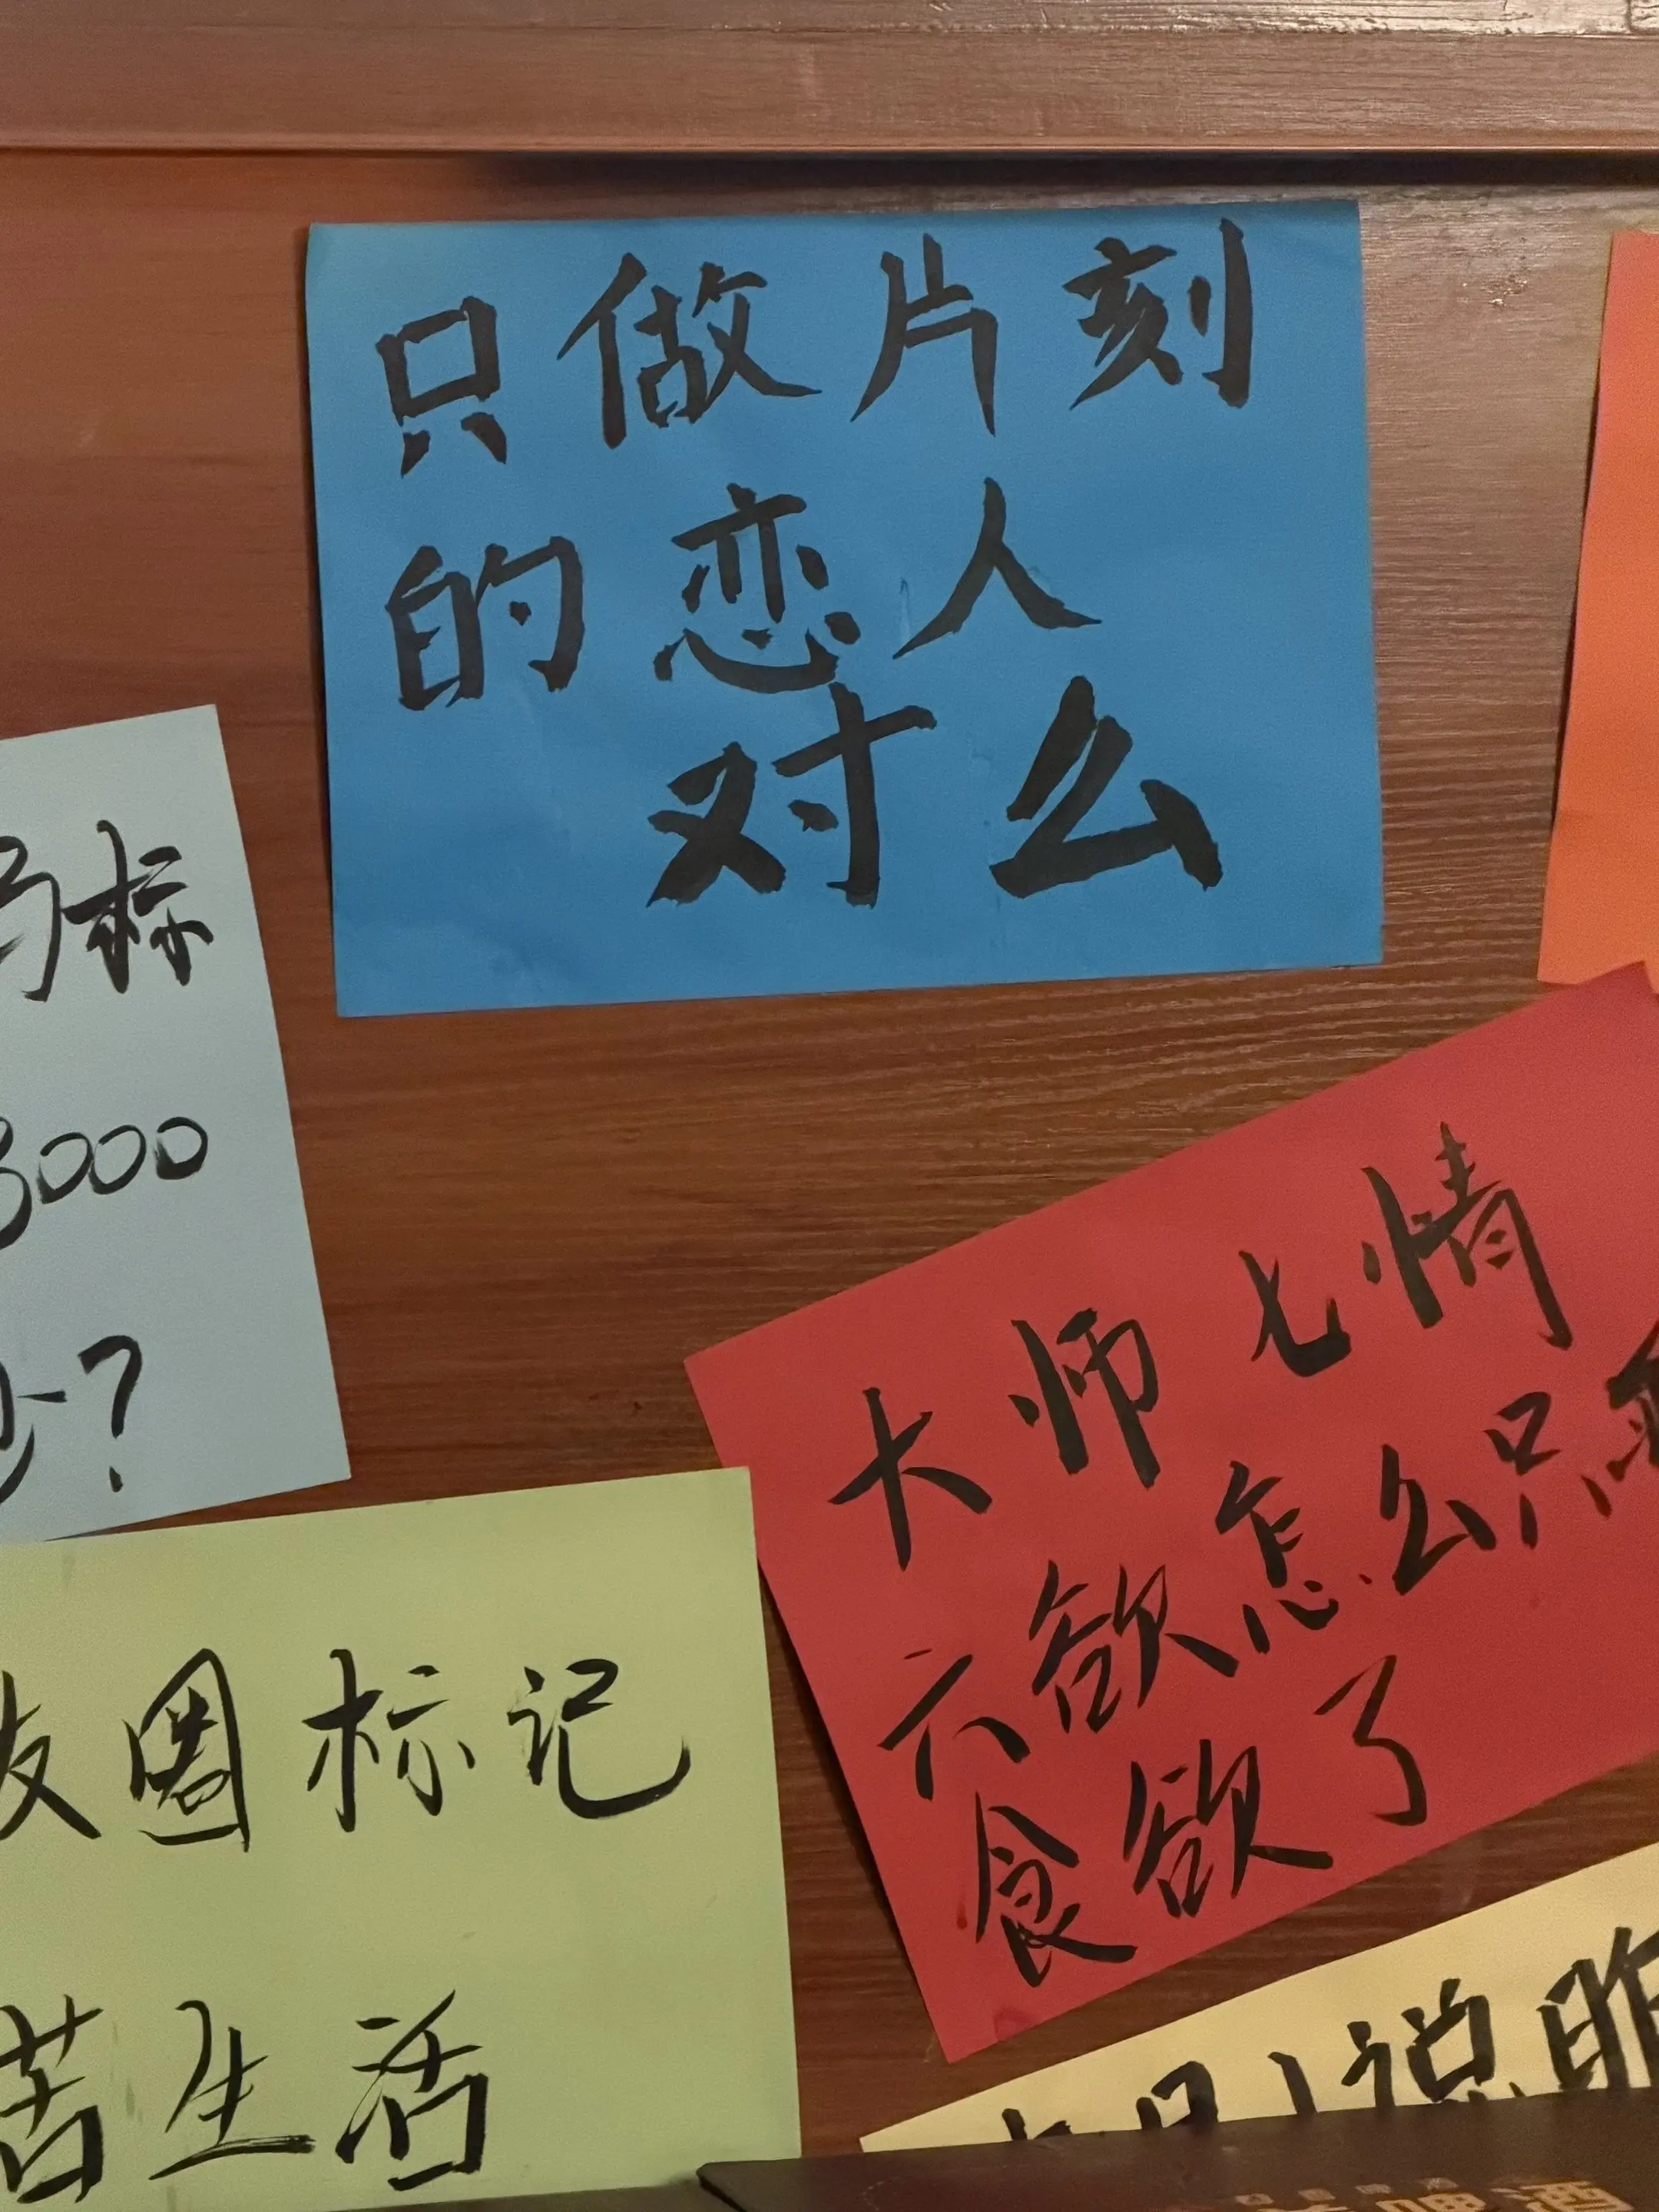 只做片刻
的恋人
对么
标
3000
?
大师七情
六欲怎么只剩
食欲了
友圈标记
苦生活
说昨